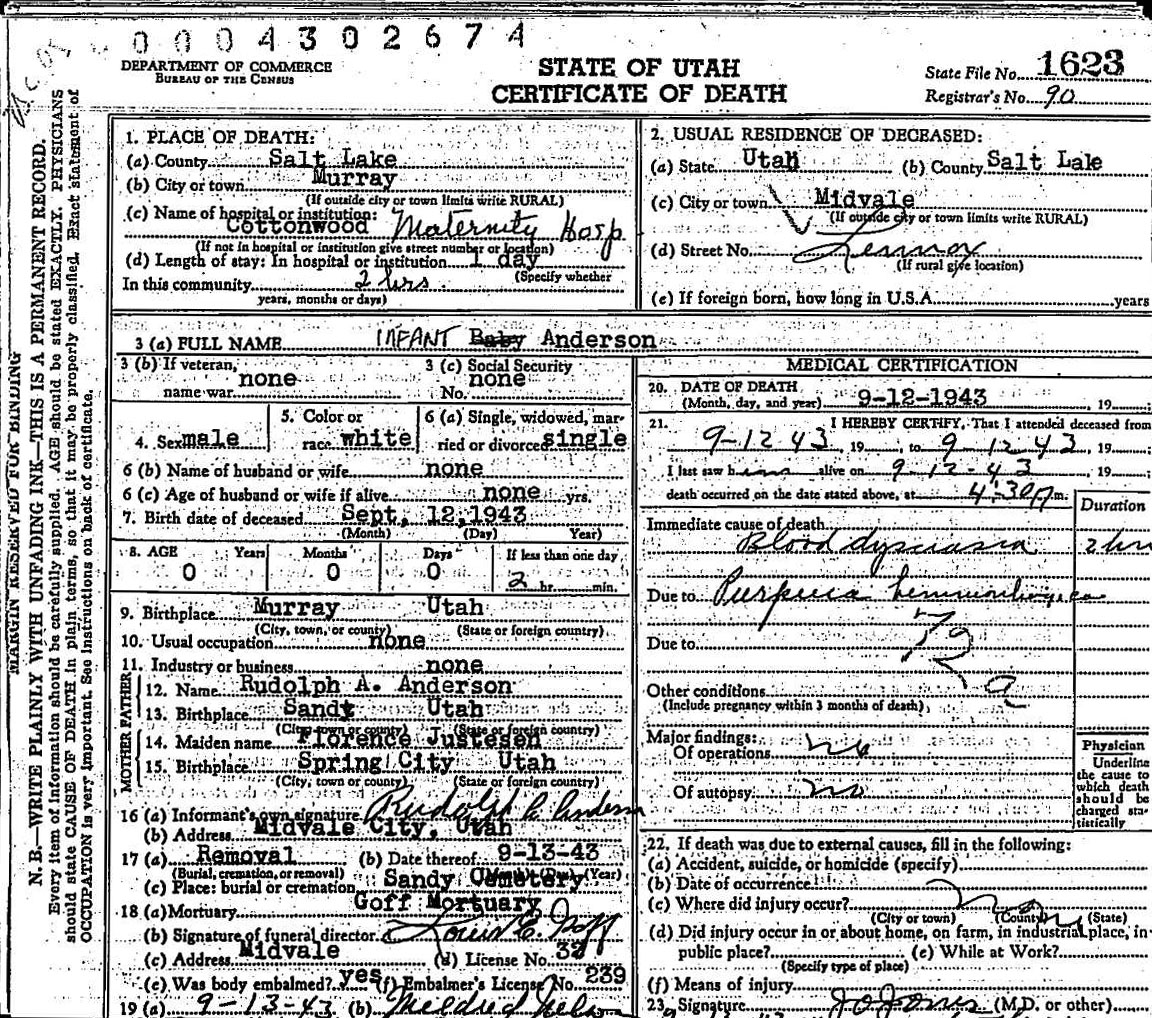 0004302674
DEPARTMENT OF COMMERCE
BUREAU OF THE CENSUS
STATE OF UTAH
CERTIFICATE OF DEATH
State File No. 1623
Registrar's No. 90
MARGIN RESERVED FOR BINDING
N. B.—WRITE PLAINLY WITH UNFADING INK—THIS IS A PERMANENT RECORD.
Every item of information should be carefully supplied. AGE should be stated EXACTLY. PHYSICIANS
should state CAUSE OF DEATH in plain terms, so that it may be properly classified. Exact statement of
OCCUPATION is very important. See instructions on back of certificate.
1. PLACE OF DEATH:
(a) County Salt Lake
(b) City or town Murray
(If outside city or town limits write RURAL)
(c) Name of hospital or institution:
Cottonwood Maternity Hosp
(If not in hospital or institution give street number or location)
(d) Length of stay: In hospital or institution 1 day
(Specify whether
In this community 2 hrs.
years, months or days)
2. USUAL RESIDENCE OF DECEASED:
(a) State Utah (b) County Salt Lale
(c) City or town Midvale
(If outside city or town limits write RURAL)
(d) Street No. Lennox
(If rural give location)
(e) If foreign born, how long in U.S.A. years
3 (a) FULL NAME INFANT Baby Anderson
3 (b) If veteran, none
name war
3 (c) Social Security
No. none
4. Sex male
5. Color or
race white
6 (a) Single, widowed, mar-
ried or divorced single
6 (b) Name of husband or wife none
6 (c) Age of husband or wife if alive none yrs.
7. Birth date of deceased Sept. 12, 1943
(Month) (Day) Year)
8. AGE Years Months Days If less than one day
0 0 0 2 hr. min.
9. Birthplace Murray Utah
(City, town, or county) (State or foreign country)
10. Usual occupation none
11. Industry or business none
FATHER
12. Name Rudolph A. Anderson
13. Birthplace Sandy Utah
(City, town or county) (State or foreign country)
MOTHER
14. Maiden name Florence Justesen
15. Birthplace Spring City Utah
(City, town or county) (State or foreign country)
16 (a) Informant's own signature Rudolph Anderson
(b) Address Midvale City, Utah
17 (a) Removal (b) Date thereof 9-13-43
(Burial, cremation, or removal) (Month) (Day) (Year)
(c) Place: burial or cremation Sandy Cemetery
18 (a) Mortuary Goff Mortuary
(b) Signature of funeral director Louis E. Goff
(c) Address Midvale (d) License No. 32
(e) Was body embalmed? yes (f) Embalmer's License No. 239
19 (a) 9-13-43 (b) Mildred
MEDICAL CERTIFICATION
20. DATE OF DEATH
(Month, day, and year) 9-12-1943, 19
21. I HEREBY CERTIFY, That I attended deceased from
9-12 43, 19 , to 9-12-43, 19
I last saw him alive on 9-12-43, 19
death occurred on the date stated above, at 4:30 P m.
Duration
Immediate cause of death
Blood dyscrasia 2 hrs
Due to Purpura hemmorhagica
Due to
79
a
Other conditions
(Include pregnancy within 3 months of death)
Major findings:
Of operations no
Of autopsy no
Physician
Underline
the cause to
which death
should be
charged sta-
tistically
22. If death was due to external causes, fill in the following:
(a) Accident, suicide, or homicide (specify)
(b) Date of occurrence
(c) Where did injury occur?
(City or town) (County) (State)
(d) Did injury occur in or about home, on farm, in industrial place, in
public place? (e) While at Work?
(Specify type of place)
(f) Means of injury
23. Signature J O Jones (M.D. or other)